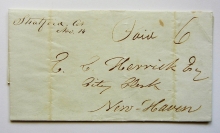 Stratford Ct
Nov. 14
Paid 6
E. C. Herrick Esq
City Clerk
New-Haven